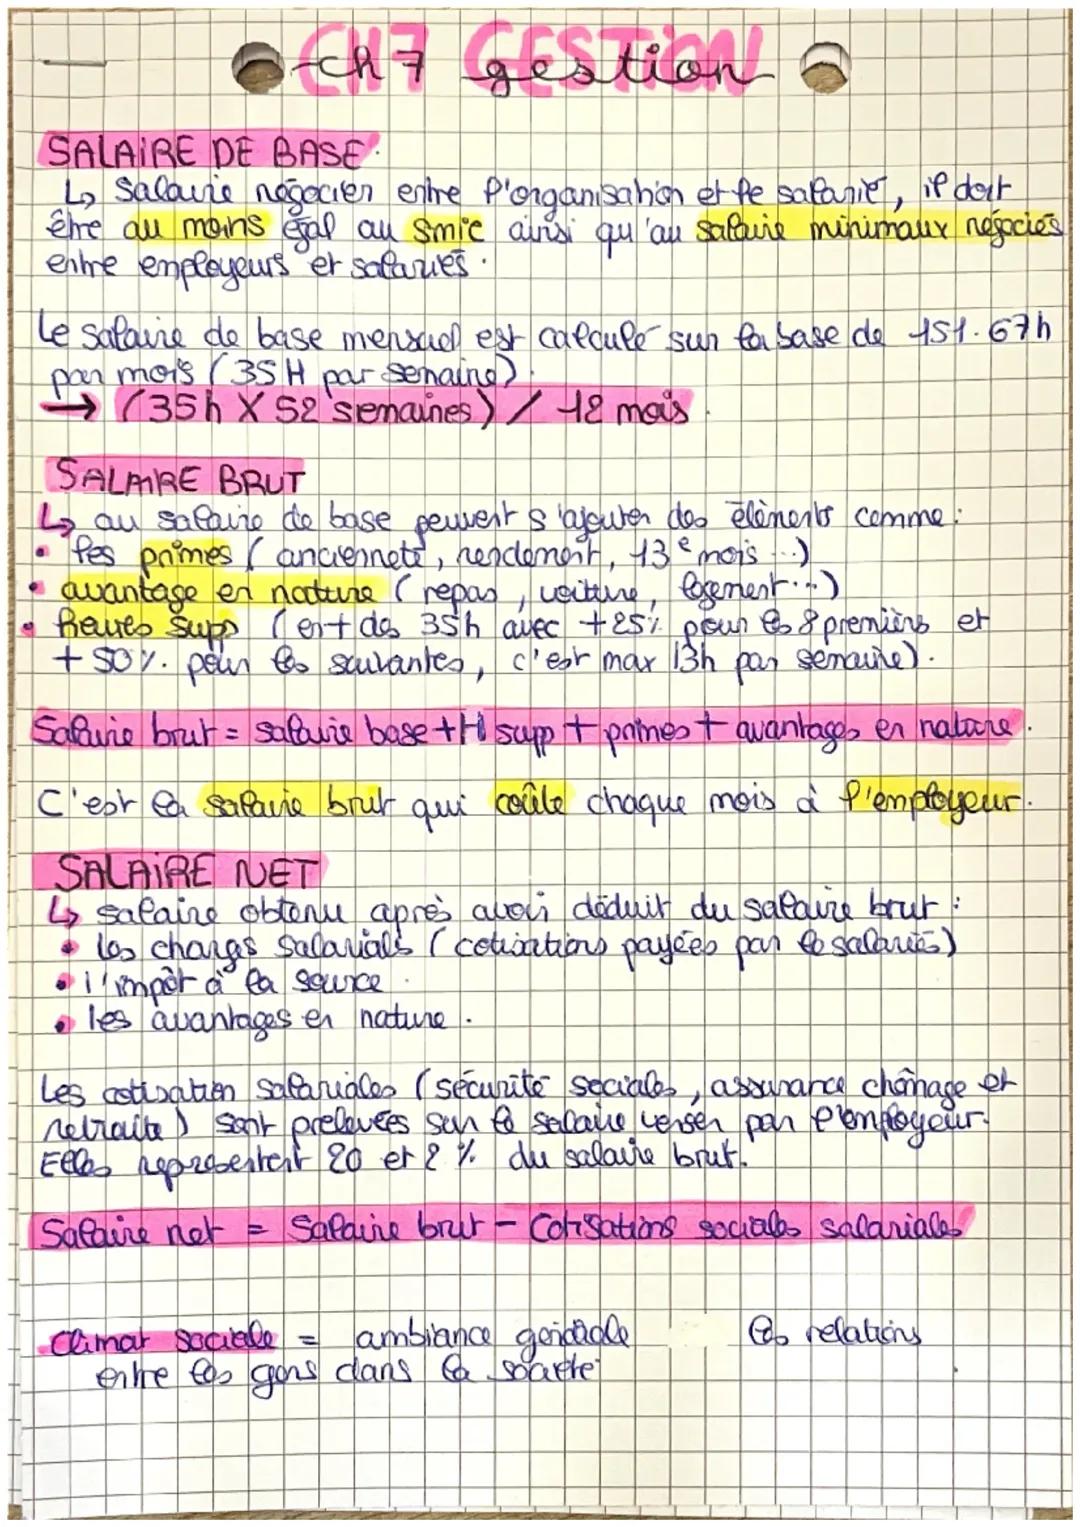 CH7 GESTiON
ch 7 gestion
SALAiRE DE BASE
↳ Salaire négocier entre l'organisation et le salarié, il doit
être au moins égal au Smic ainsi qu'au salaire minimaux négociés
entre employeurs et salariés.
Le salaire de base mensuel est calculé sur la base de 151.67h
par mois (35H par semaine).
→ (35h X 52 semaines) / 12 mois.
SALAIRE BRUT
↳ au salaire de base peuvent s'ajouter des éléments comme:
• les primes (ancienneté, rendement, 13e mois...)
• avantage en nature (repas, voiture, logement...)
• heures sups (en + des 35h avec +25% pour les 8 premières et
+50% pour les suivantes, c'est max 13h par semaine).
Salaire brut = salaire base + H supp + primes + avantages en nature.
C'est la salarie brut qui coûte chaque mois à l'employeur.
SALAiRE NET
↳ salaire obtenu après avoir déduit du salaire brut:
• les charges salarials (cotisations payées par le salariés)
• l'impôt à la source.
• les avantages en nature.
Les cotisation salariales (sécurité sociales, assurance chômage et
retraite) sont prélevées sur le salaire verser par l'employeur.
Elles représentent 20 et 2% du salaire brut.
Salaire net = Salaire brut - Cotisations sociales salariales
Climat sociale = ambiance générale les relations
entre les gens dans la société